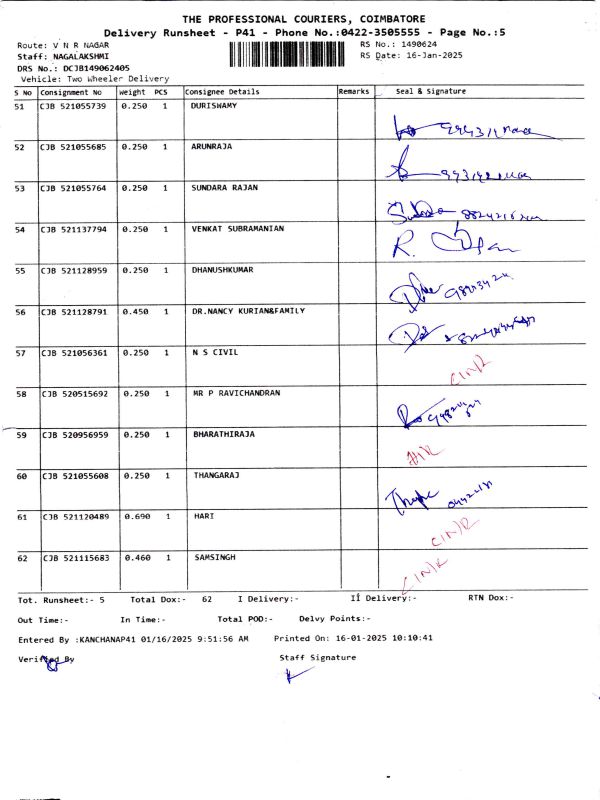 THE PROFESSIONAL COURIERS, COIMBATORE
Delivery Runsheet - P41 - Phone No.:0422-3505555 - Page No.:5
Route: V N R NAGAR RS No.: 1490624
Staff: NAGALAKSHMI RS Date: 16-Jan-2025
DRS No.: DCJB149062405
Vehicle: Two Wheeler Delivery
S No Consignment No Weight PCS Consignee Details Remarks Seal & Signature
51 CJB 521055739 0.250 1 DURISWAMY
52 CJB 521055685 0.250 1 ARUNRAJA
53 CJB 521055764 0.250 1 SUNDARA RAJAN
54 CJB 521137794 0.250 1 VENKAT SUBRAMANIAN
55 CJB 521128959 0.250 1 DHANUSHKUMAR
56 CJB 521128791 0.450 1 DR.NANCY KURIAN&FAMILY
57 CJB 521056361 0.250 1 N S CIVIL
58 CJB 520515692 0.250 1 MR P RAVICHANDRAN
59 CJB 520956959 0.250 1 BHARATHIRAJA
60 CJB 521055608 0.250 1 THANGARAJ
61 CJB 521120489 0.690 1 HARI
62 CJB 521115683 0.460 1 SAMSINGH
Tot. Runsheet:- 5 Total Dox:- 62 I Delivery:- II Delivery:- RTN Dox:-
Out Time:- In Time:- Total POD:- Delvy Points:-
Entered By :KANCHANAP41 01/16/2025 9:51:56 AM Printed On: 16-01-2025 10:10:41
Verified By Staff Signature